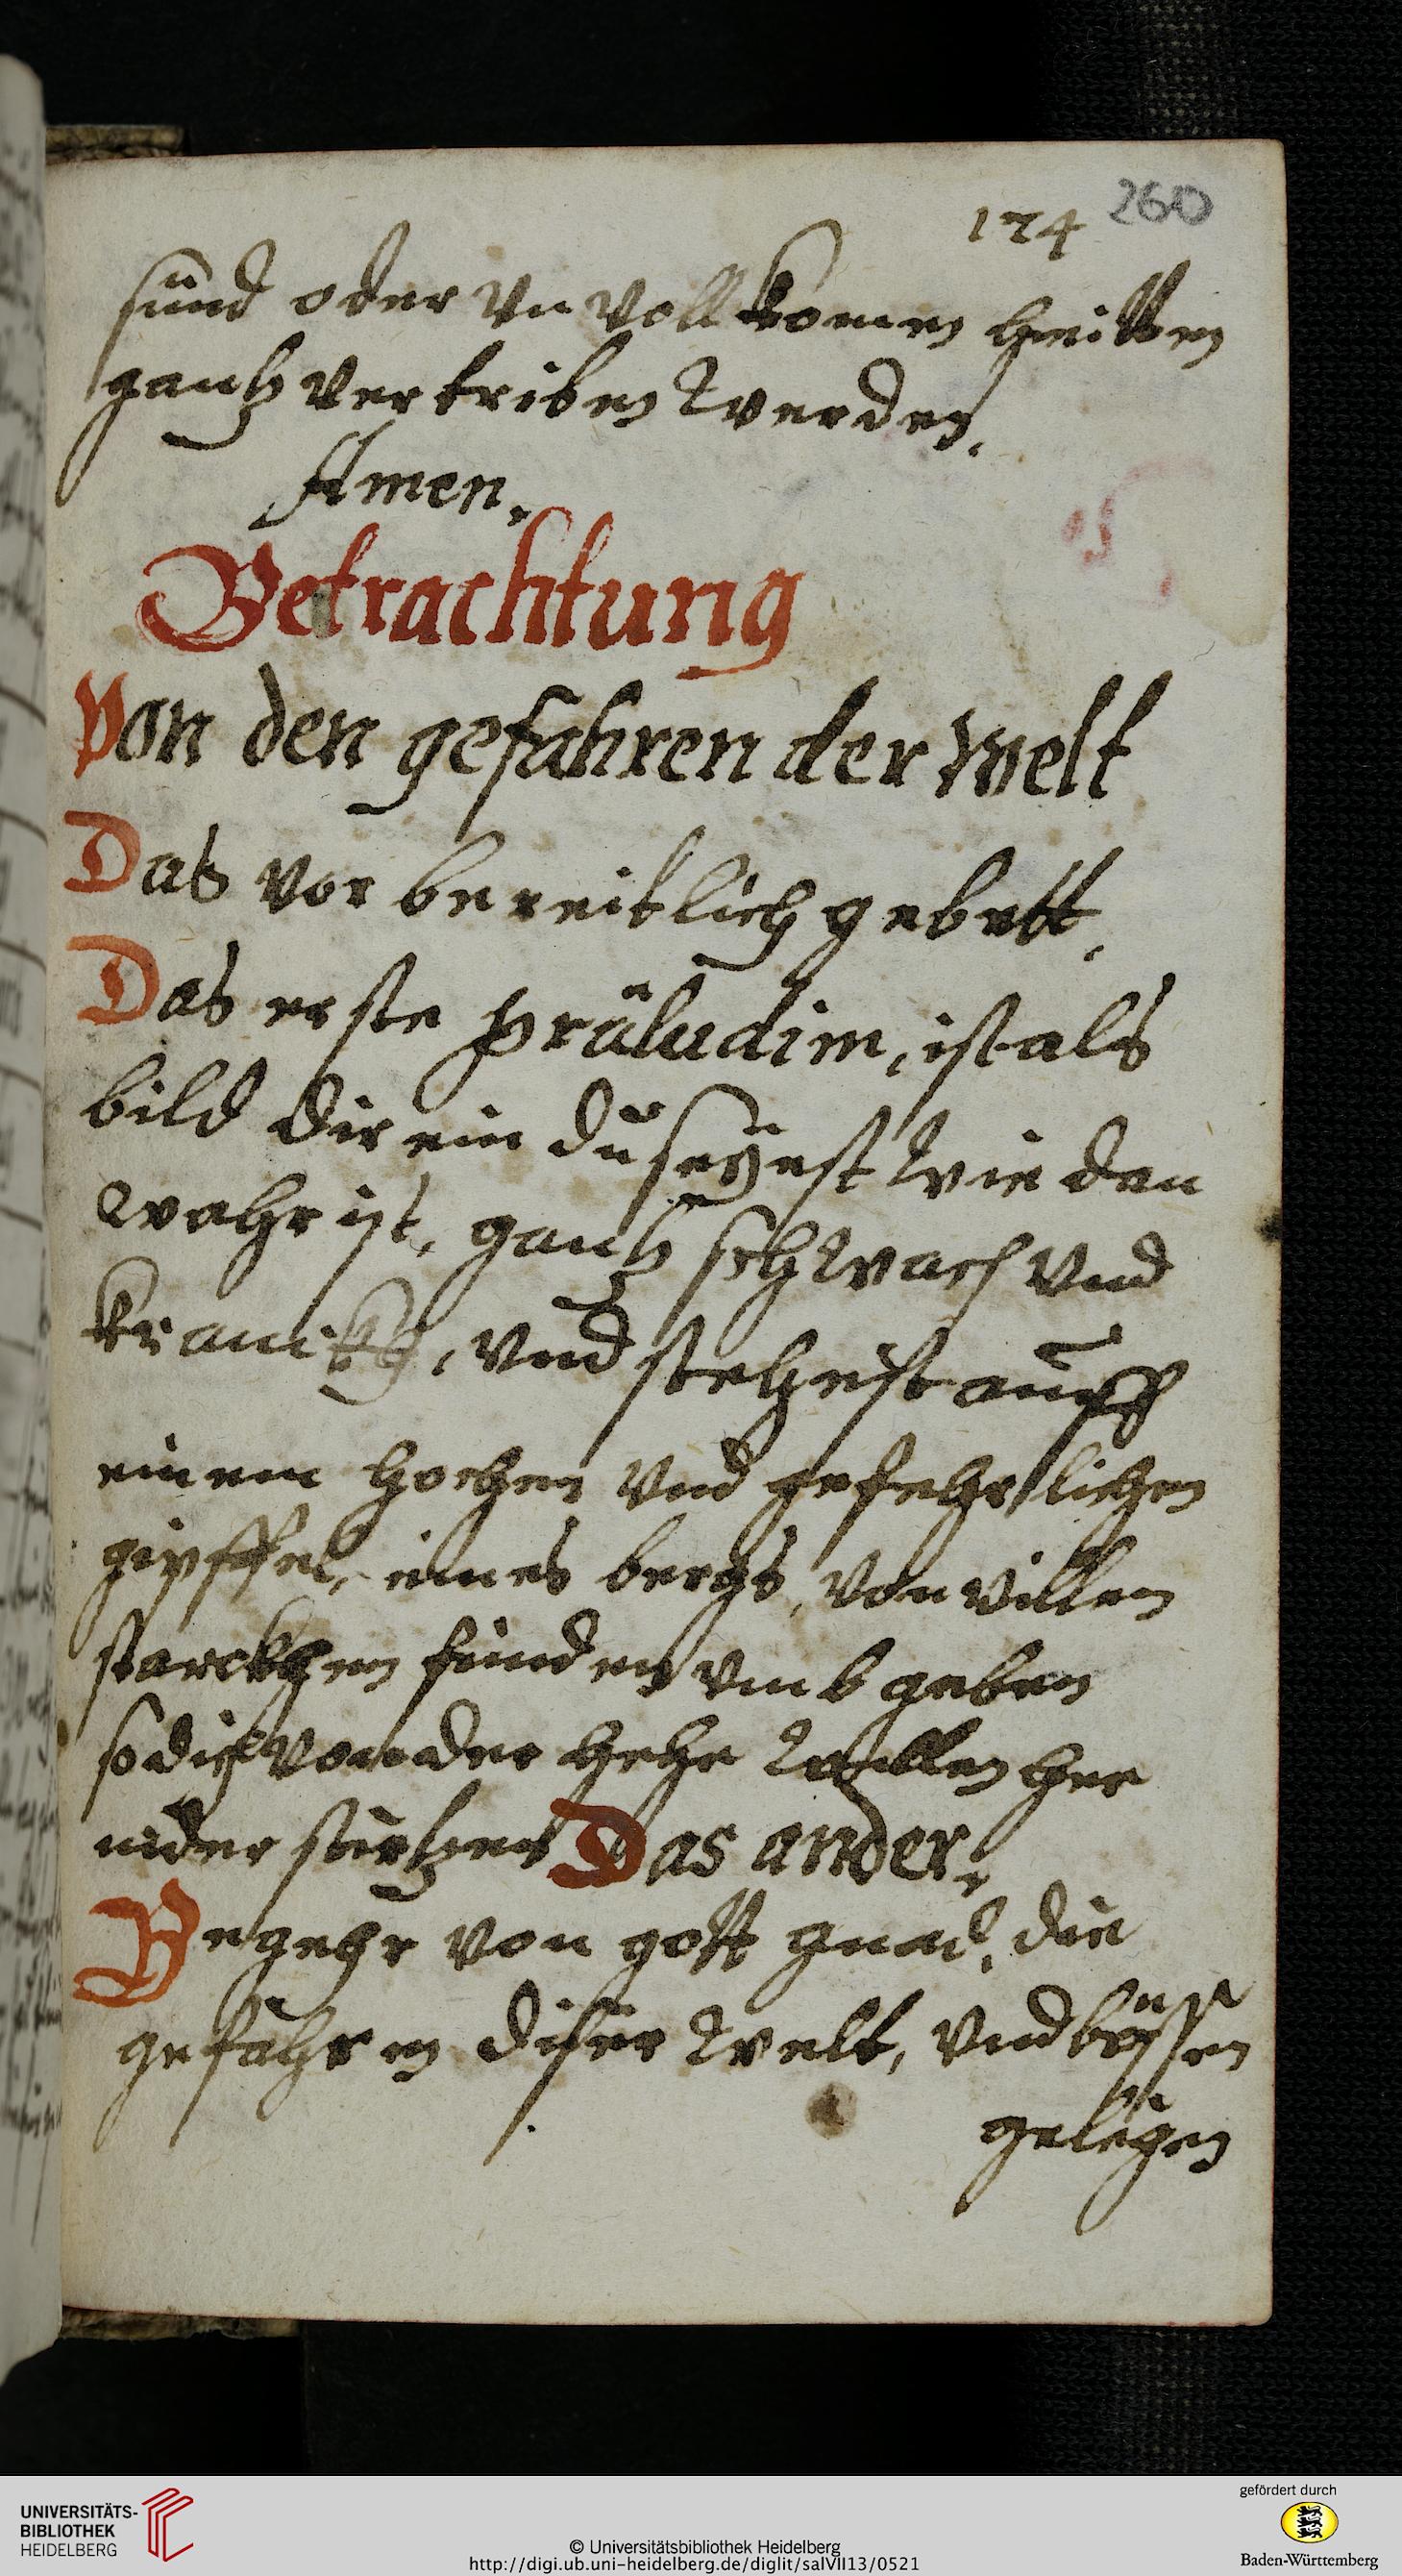 124 260
sünd oder vnvollkomenheitten
gantz vertriben werden.
Amen.
Betrachtung
Von den gefahren der Welt
Das vorbereitlich gebett.
Das erste präludim, ist als
bild dir ein du seÿest wie dan
wahr ist, gantz schwach vnd
kranckh, vnd stehest auff
einem hochen vnd gefehrlichen
gipffel, eines bergs, von villen
starckhen feinden vmbgeben
so dich von der hehe wellen her
nider stürtzen Das ander.
Begehr von gott gnad, die
gefahren diser welt, vnd bössen
gelegen
UNIVERSITÄTS-
BIBLIOTHEK
HEIDELBERG
© Universitätsbibliothek Heidelberg
http://digi.ub.uni-heidelberg.de/diglit/salVII13/0521
gefördert durch
Baden-Württemberg